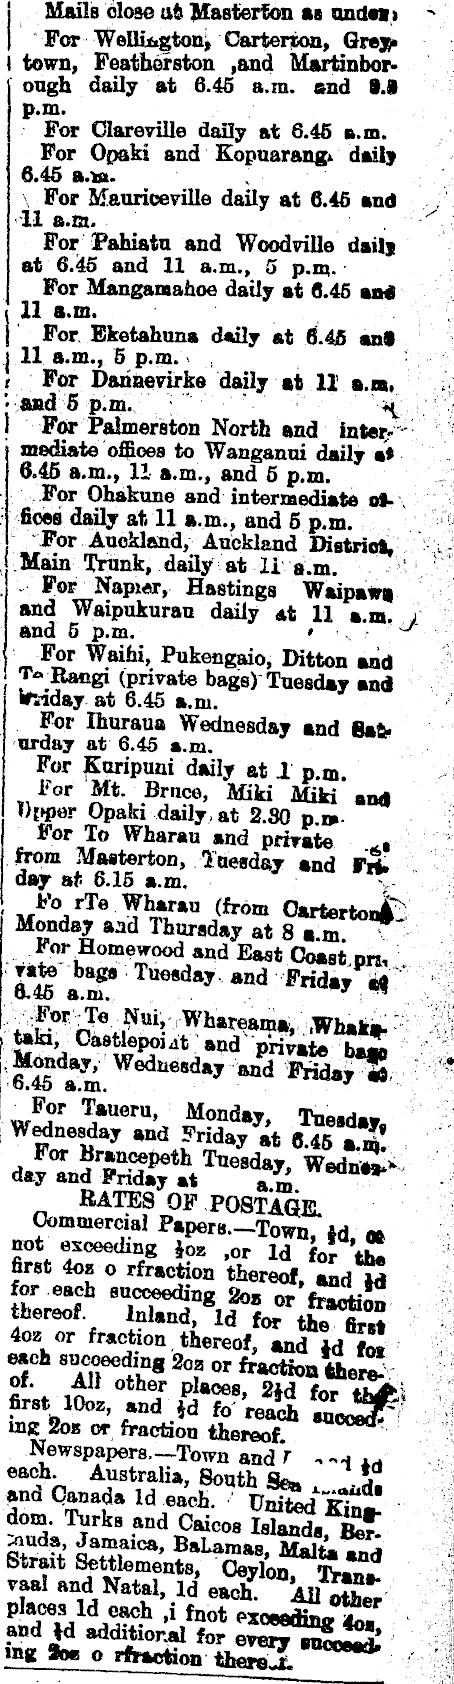 Mails close at Masterton as under:
For Wellington, Carterton, Grey-
town, Featherston ,and Martinbor-
ough daily at 6.45 a.m. and
p.m.
For Clareville daily at 6.45 a.m.
For Opaki and Kopuarang. daily
6.45 a.m.
For Mauriceville daily at 6.45 and
11 a.m.
For Pahiatu and Woodville daily
at 6.45 and 11 a.m., 5 p.m.
For Mangamahoe daily at 6.45 and
11 a.m.
For Eketahuna daily at 6.45 and
11 a.m., 5 p.m.
For Dannevirke daily at 11 a.m.
and 5 p.m.
For Palmerston North and inter-
mediate offices to Wanganui daily at
6.45 a.m., 11 a.m., and 5 p.m.
For Ohakune and intermediate of-
fices daily at 11 a.m., and 5 p.m.
For Auckland, Auckland District,
Main Trunk, daily at 11 a.m.
For Napier, Hastings Waipawa
and Waipukurau daily at 11 a.m.
and 5 p.m.
For Waihi, Pukengaio, Ditton and
Te Rangi (private bags) Tuesday and
Friday at 6.45 a.m.
For Ihuraua Wednesday and Sat-
urday at 6.45 a.m.
For Kuripuni daily at 1 p.m.
For Mt. Bruce, Miki Miki and
Upper Opaki daily, at 2.30 p.m.
For To Wharau and private
from Masterton, Tuesday and Fri-
day at 6.15 a.m.
Fo rTe Wharau (from Carterton)
Monday and Thursday at 8 a.m.
For Homewood and East Coast pri-
vate bags Tuesday and Friday at
6.45 a.m.
For Te Nui, Whareama, Whaka-
taki, Castlepoint and private bags
Monday, Wednesday and Friday at
6.45 a.m.
For Taueru, Monday, Tuesday,
Wednesday and Friday at 6.45 a.m.
For Brancepeth Tuesday, Wednes-
day and Friday at a.m.
RATES OF POSTAGE.
Commercial Papers.—Town, ½d, on
not exceeding ½oz ,or 1d for the
first 4oz o rfraction thereof, and ½d
for each succeeding 2oz or fraction
thereof. Inland, 1d for the first
4oz or fraction thereof, and ½d for
each succeeding 2oz or fraction there-
of. All other places, 2½d for the
first 10oz, and ½d fo reach succed-
ing 2oz or fraction thereof.
Newspapers.—Town and ½d
each. Australia, South Sea Islands
and Canada 1d each. United King-
dom. Turks and Caicos Islands, Ber-
muda, Jamaica, BaLamas, Malta and
Strait Settlements, Ceylon, Trans-
vaal and Natal, 1d each. All other
places 1d each ,i fnot exceeding 4oz,
and ½d additional for every succeed-
ing 2oz o rfraction thereof.